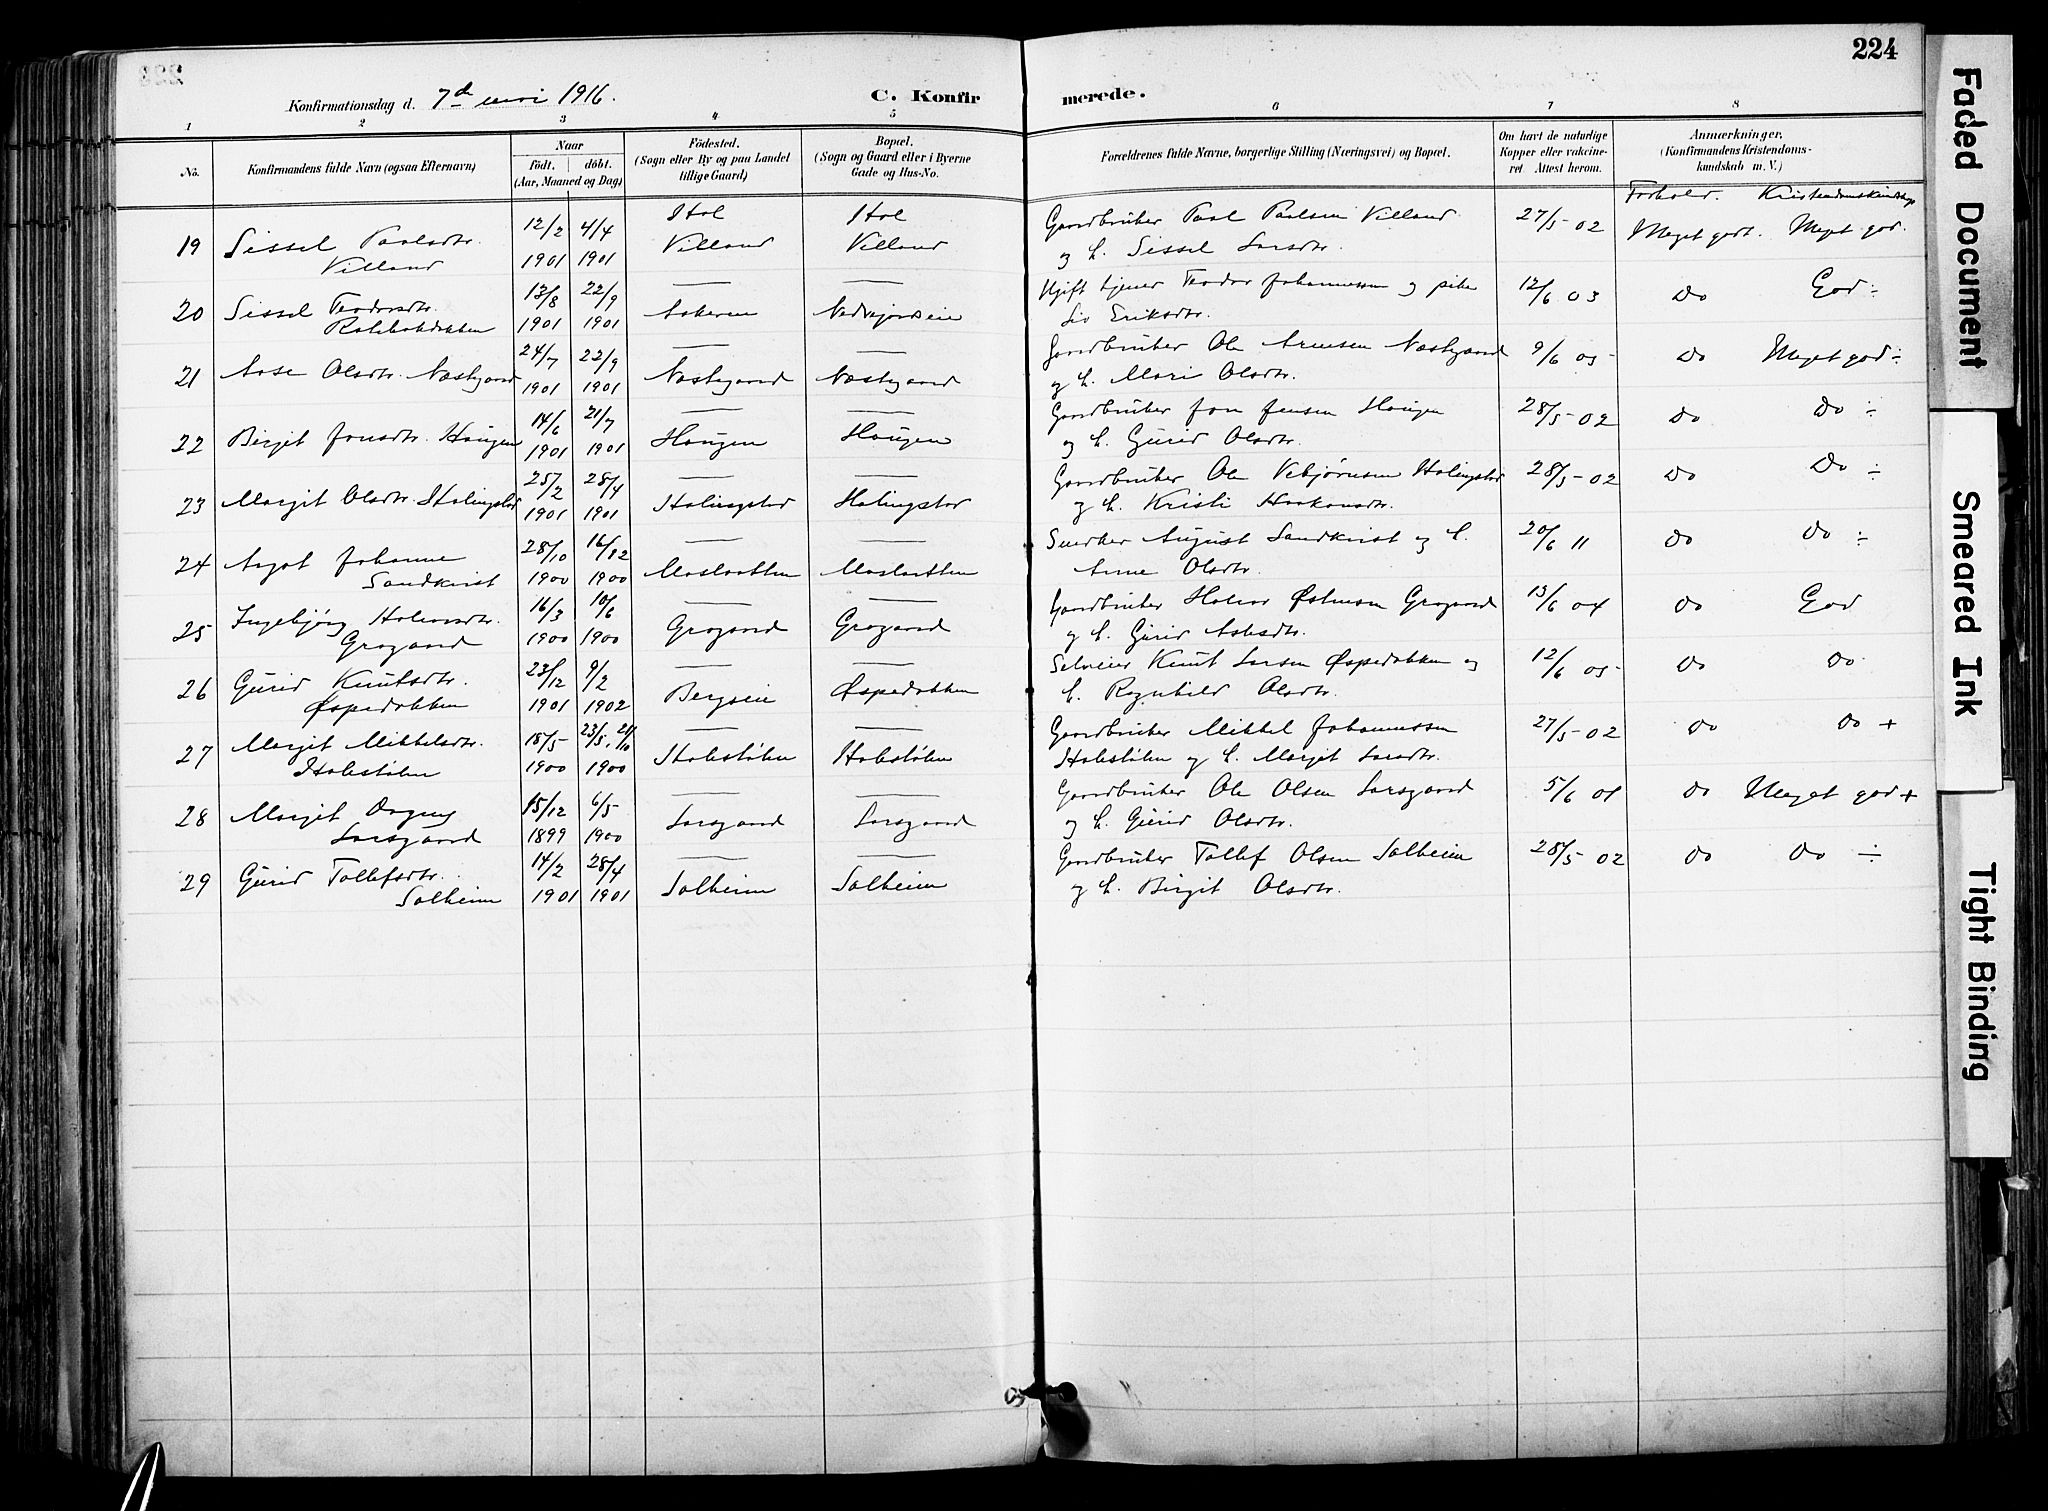 224
Konfirmationsdag d. 7de mai 1916.
C. Konfirmerede.
1 2 3 4 5 6 7 8
No.
Konfirmandens fulde Navn (ogsaa Efternavn)
Naar
Födt. döbt.
(Aar, Maaned og Dag)
Födested.
(Sogn eller By og paa Landet
tillige Gaard)
Bopæl.
(Sogn og Gaard eller i Byerne
Gade og Hus-No.
Forældrenes fulde Navne, borgerlige Stilling (Næringsvei) og Bopæl.
Om havt de naturlige
Kopper eller vakcine-
ret Attest herom.
Anmærkninger,
(Konfirmandens Kristendoms-
kundskab m. V.)
Forhold. Kristendomskundskap
19 Sissel Paalsdtr. 12/2 4/4 Hol Hol Gaardbruker Paal Paalsen Villand 27/5-02 Meget godt. Meget god.
Villand 1901 1901 Villand Villand og h. Sissel Larsdtr.
20 Sissel Teodorsdtr. 13/8 22/9 — — Ugift tjener Teodor Johannessen og pike 12/6 03 Do God ÷
1901 1901 Liv Eriksdtr.
21 Aase Olsdtr. Nestegaard 24/7 22/9 — — Gaardbruker Ole Arnesen Nestegaard 9/6 05 Do Meget god ÷
1901 1901 Nestegaard Nestegaard og h. Mari Olsdtr.
22 Birgit Jonsdtr. Haugen 14/6 21/7 — — Gaardbruker Jon Jensen Haugen 28/5-02 Do Do ÷
1901 1901 Haugen Haugen og h. Guri Olsdtr.
23 Margit Olsdtr. Holingstad 25/2 28/4 — — Gaardbruker Ole Vebjørnsen Holingstad 28/5-02 Do Do ÷
1901 1901 Holingstad Holingstad og h. Kristi Haakonsdtr.
24 Aagot Johanne 28/10 16/12 — — Snedker August Sandkvist og h. 20/6 11 Do Do ÷
Sandkvist 1900 1900 Moslaatten Moslaatten Anne Olsdtr.
25 Ingebjørg Halvorsdtr. 16/3 10/6 — — Gaardbruker Halvor Østensen Grøgaard 13/6 04 Do God
Grøgaard 1900 1900 Grøgaard Grøgaard og h. Guri Aslesdtr.
26 Gurid Knutsdtr. 23/12 9/2 — — Selveier Knut Larsen Øspedokken og 12/6 05 Do Do
Øspedokken 1901 1902 Bergseie Øspedokken h. Ragnhild Olsdtr.
27 Margit Mikkelsdtr. 18/5 23/5, 21/10 — — Gaardbruker Mikkel Johannessen 27/5-02 Do Do +
Holestølen 1900 1900 Holestølen Holestølen Holestølen og h. Margit Larsdtr.
28 Margit Dagny 15/12 6/5 — — Gaardbruker Ole Olsen Larsgaard 5/6 01 Do Meget god +
Larsgaard 1899 1900 Larsgaard Larsgaard og h. Guri Olsdtr.
29 Gurid Tollefsdtr. 14/2 28/4 — — Gaardbruker Tollef Olsen Solheim 28/5-02 Do Do ÷
Solheim 1901 1901 Solheim Solheim og h. Birgit Olsdtr.
Faded Document
Smeared Ink
Tight Binding